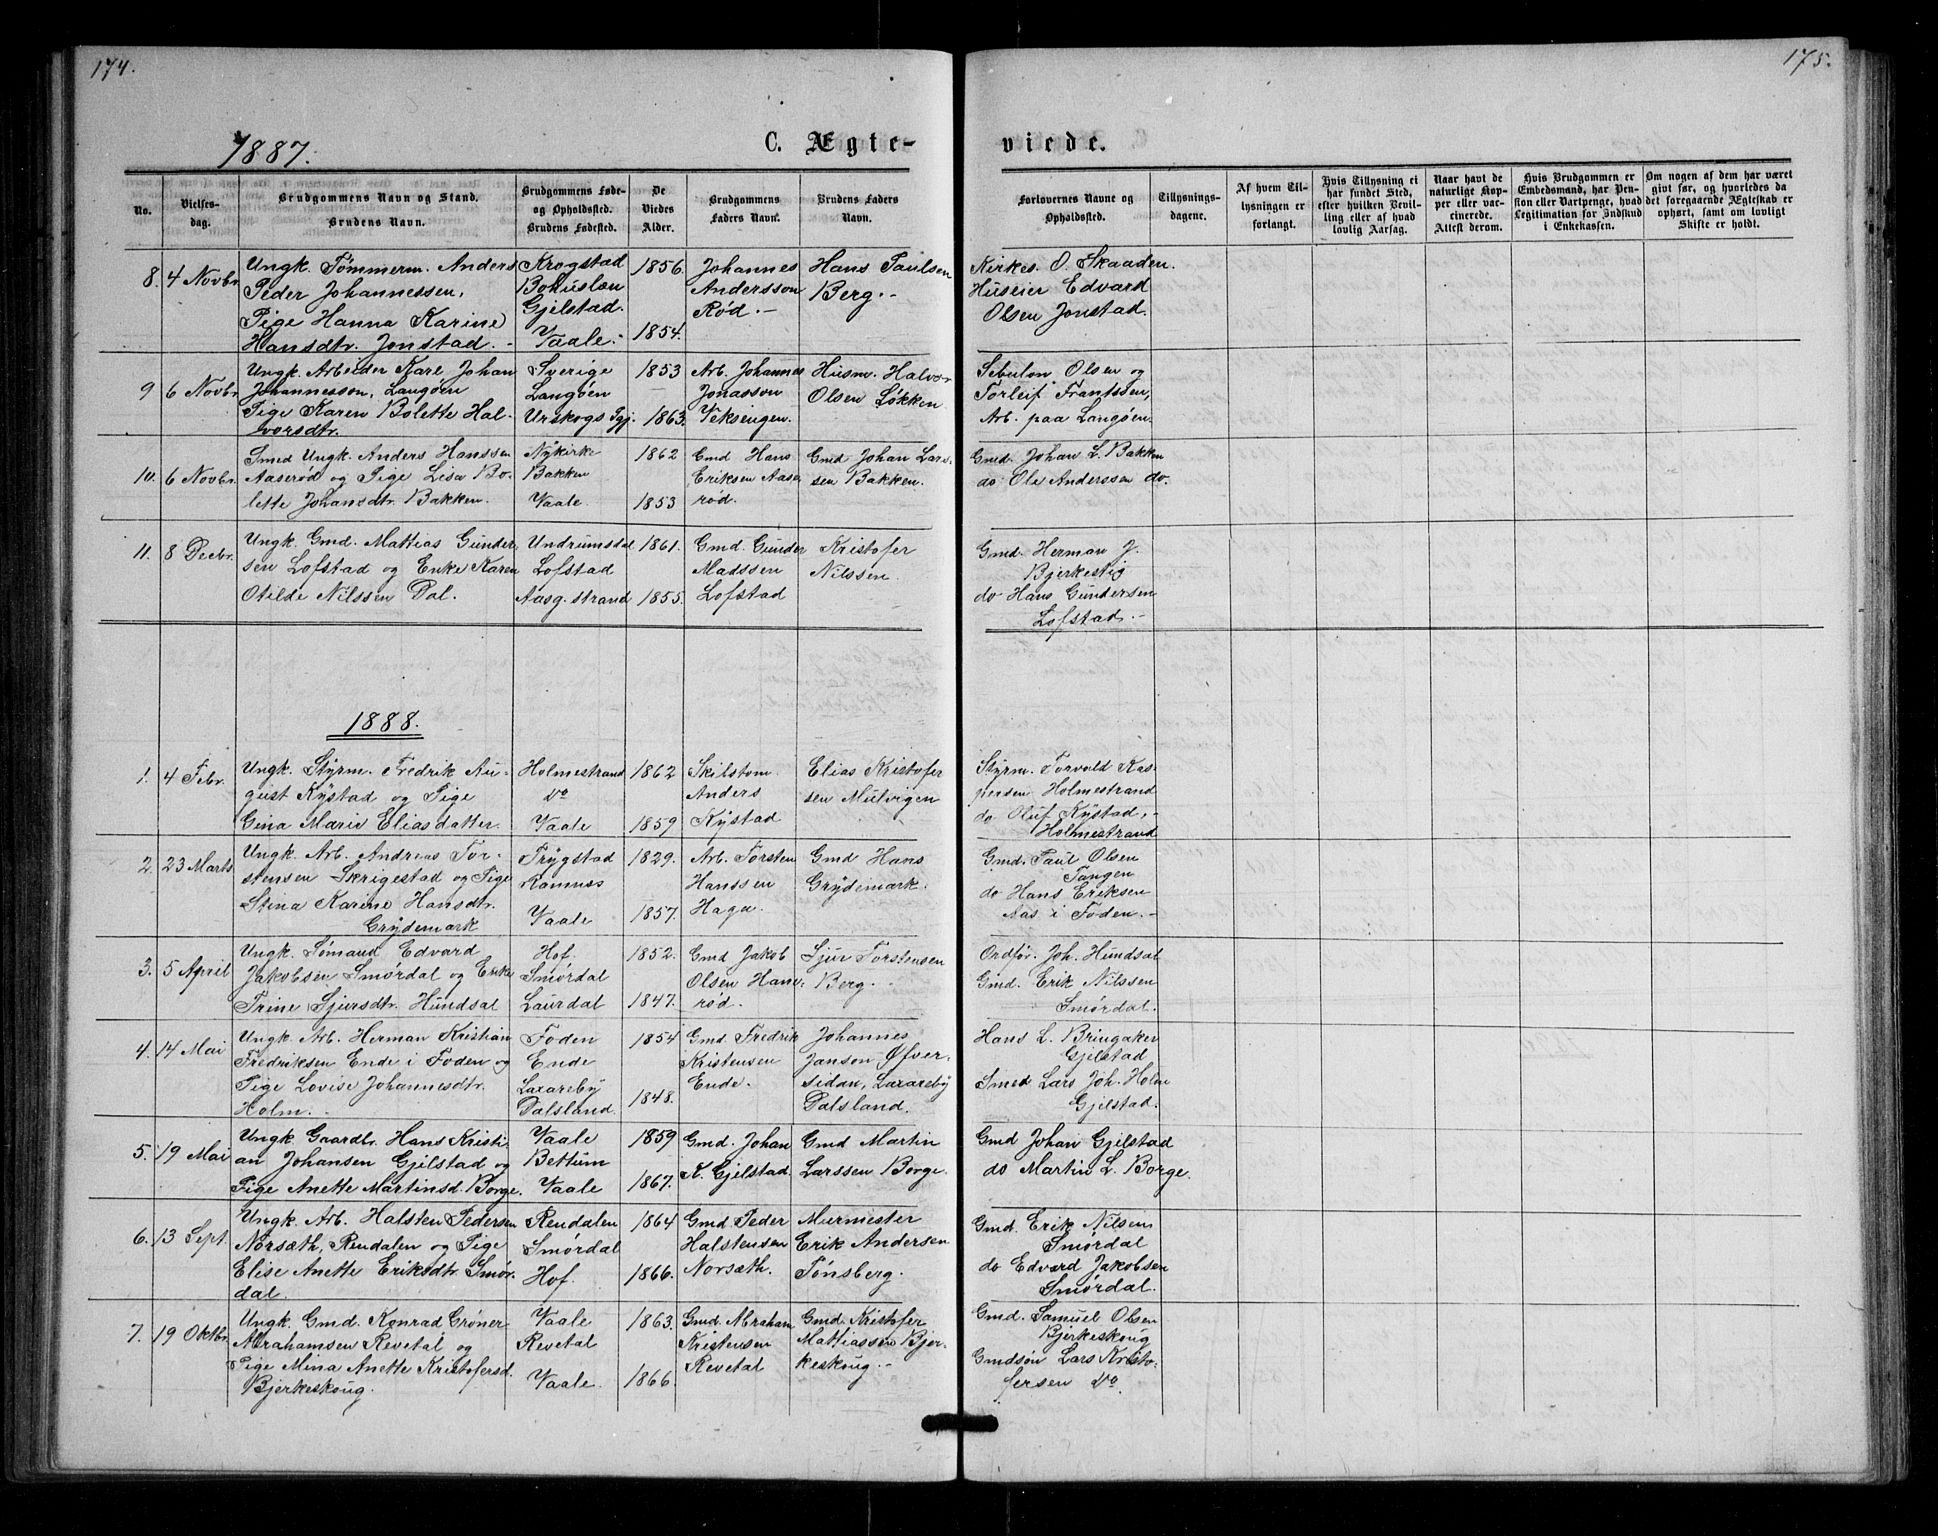 174.
175.
1887.
C. Ægte-
viede.
No.
Vielses-
dag.
Brudgommens Navn og Stand.
Brudens Navn.
Brudgommens Føde-
og Opholdssted.
Brudens Fødested.
De
Viedes
Alder.
Brudgommens
Faders Navn.
Brudens Faders
Navn.
Forlovernes Navne og
Opholdssted.
Tillysnings-
dagene.
Af hvem Til-
lysningen er
forlangt.
Hvis Tillysning ei
har fundet Sted,
efter hvilken Bevil-
ling eller af hvad
lovlig Aarsag.
Naar havt de
naturlige Kop-
per eller vac-
cinerede.
Attest derom.
Hvis Brudgommen er
Embedsmand, har Pen-
sion eller Vartpenge, hvad
Legitimation for Indskud
i Enkekassen.
Om nogen af dem har været
givt før, og hvorledes da
det foregaaende Ægteskab er
ophørt, samt om lovligt
Skifte er holdt.
8. 4 Novbr.
Ungk. Tømmerm. Anders
Peder Johannessen,
Pige Hanna Karine
Hansdtr. Jonstad.
Krogstad
Bohuslæn
Gjelstad.
Vaale.
1856.
1854.
Johannes
Andersson
Rød.
Hans Paulsen
Berg.
Kirkes. O. Skaaden.
Huseier Edvard
Olsen Jonstad.
9 6 Novbr.
Ungk. Arbeider Karl Johan
Johannesson, Langøen
Pige Karen Bolette Hal-
vorsdtr.
Sverige
Langøen
Urskogs Pgj.
1853
1863.
Arb. Johannes
Jonasson
Veksingen.
Husm. Halvor
Olsen Løkken
Sebulon Olsen og
Torleif Frantssen,
Arb. paa Langøen.
10. 6 Novbr.
Smed Ungk. Anders Hanssen
Aaserød og Pige Lisa Bo-
lette Johansdtr. Bakken.
Nykirke
Bakken
Vaale.
1862
1853
Gmd Hans
Eriksen Aase
rød.
Gmd Johan Lars-
sen Bakken.
Gmd. Johan L. Bakken
do Ole Anderssen do.
11. 8 Decbr.
Ungk. Gmd. Mattias Gunder
sen Lofstad og Enke Karen
Otilde Nilssen Dal.
Undrumsdal
Lofstad
Aasg.strand
1861.
1855.
Gmd. Gunder
Madssen
Lofstad
Kristofer
Nilssen.
Gmd. Herman J.
Bjerkestig
do Hans Gundersen
Lofstad.
1888.
1. 4 Febr.
Ungk. Styrm. Fredrik Au-
gust Kystad og Pige
Gina Marie Eliasdatter.
Holmestrand
do
Vaale
1862
1859
Skilstom.
Anders
Kystad
Elias Kristofer
sen Mulvigen
Styrm. Torvald Kas-
persen Holmestrand
do Oluf Kystad,
Holmestrand
2. 23 Marts
Ungk. Arb. Andreas Tor-
stensen Skrigestad og Pige
Stina Karine Hansdtr.
Grydemark
Trygstad
Ramnes
Vaale
1829.
1857.
Arb. Torsten
Hanssen
Haga.
Gmd Hans
Grydemark.
Gmd. Paul Olsen
Tangen
do Hans Eriksen
Aas i Foden.
3. 5 April
Ungk. Sømand Edvard
Jakobsen Smørdal og Enke
Trine Sjursdtr. Hundsal
Hof.
Smørdal
Laurdal
1852.
1847.
Gmd Jakob
Olsen Hane-
rød.
Sjur Torstensen
Berg.
Ordfør. Joh. Hundsal
Gmd. Erik Nilssen
Smørdal.
4. 14 Mai
Ungk. Arb. Herman Kristian
Fredriksen Ende i Foden og
Pige Lovise Johannesdtr.
Holm.
Foden
Ende
Laxareby
Dalsland.
1854
1848.
Gmd Fredrik
Kristensen
Ende.
Johannes
Janson Øfver-
sidan, Laxareby
Dalsland.
Hans L. Bringaker
Gjelstad
Smed Lars Joh. Holm
Gjelstad.
5. 19 Mai
Ungk Gaardbr. Hans Kristi-
an Johansen Gjelstad og
Pige Anette Martinsd. Borge.
Vaale
Bettum
Vaale
1859
1867.
Gmd. Johan
K. Gjelstad.
Gmd Martin
Larssen Borge.
Gmd Johan Gjelstad
do Martin L. Borge.
6. 13 Sept.
Ungk. Arb. Halsten Pedersen
Norsæth, Rendalen og Pige
Elise Anette Eriksdtr. Smør-
dal.
Rendalen
Smørdal
Hof.
1864
1866.
Gmd. Peder
Halstensen
Norsæth.
Murmester
Erik Andersen
Tønsberg.
Gmd. Erik Nilsen
Smørdal
do Edvard Jakobsen
Smørdal.
7. 19 Oktbr.
Ungk. Gmd. Konrad Grøner
Abrahamsen Revetal og
Pige Mina Anette Kristofersd.
Bjerkeskoug.
Vaale
Revetal
Vaale.
1863.
1866.
Gmd. Abraham
Kristensen
Revetal
Gmd. Kristofer
Mattiassen Bjer-
keskoug.
Gmd. Samuel Olsen
Bjerkeskoug
Gmdsøn Lars Kristo-
fersen do